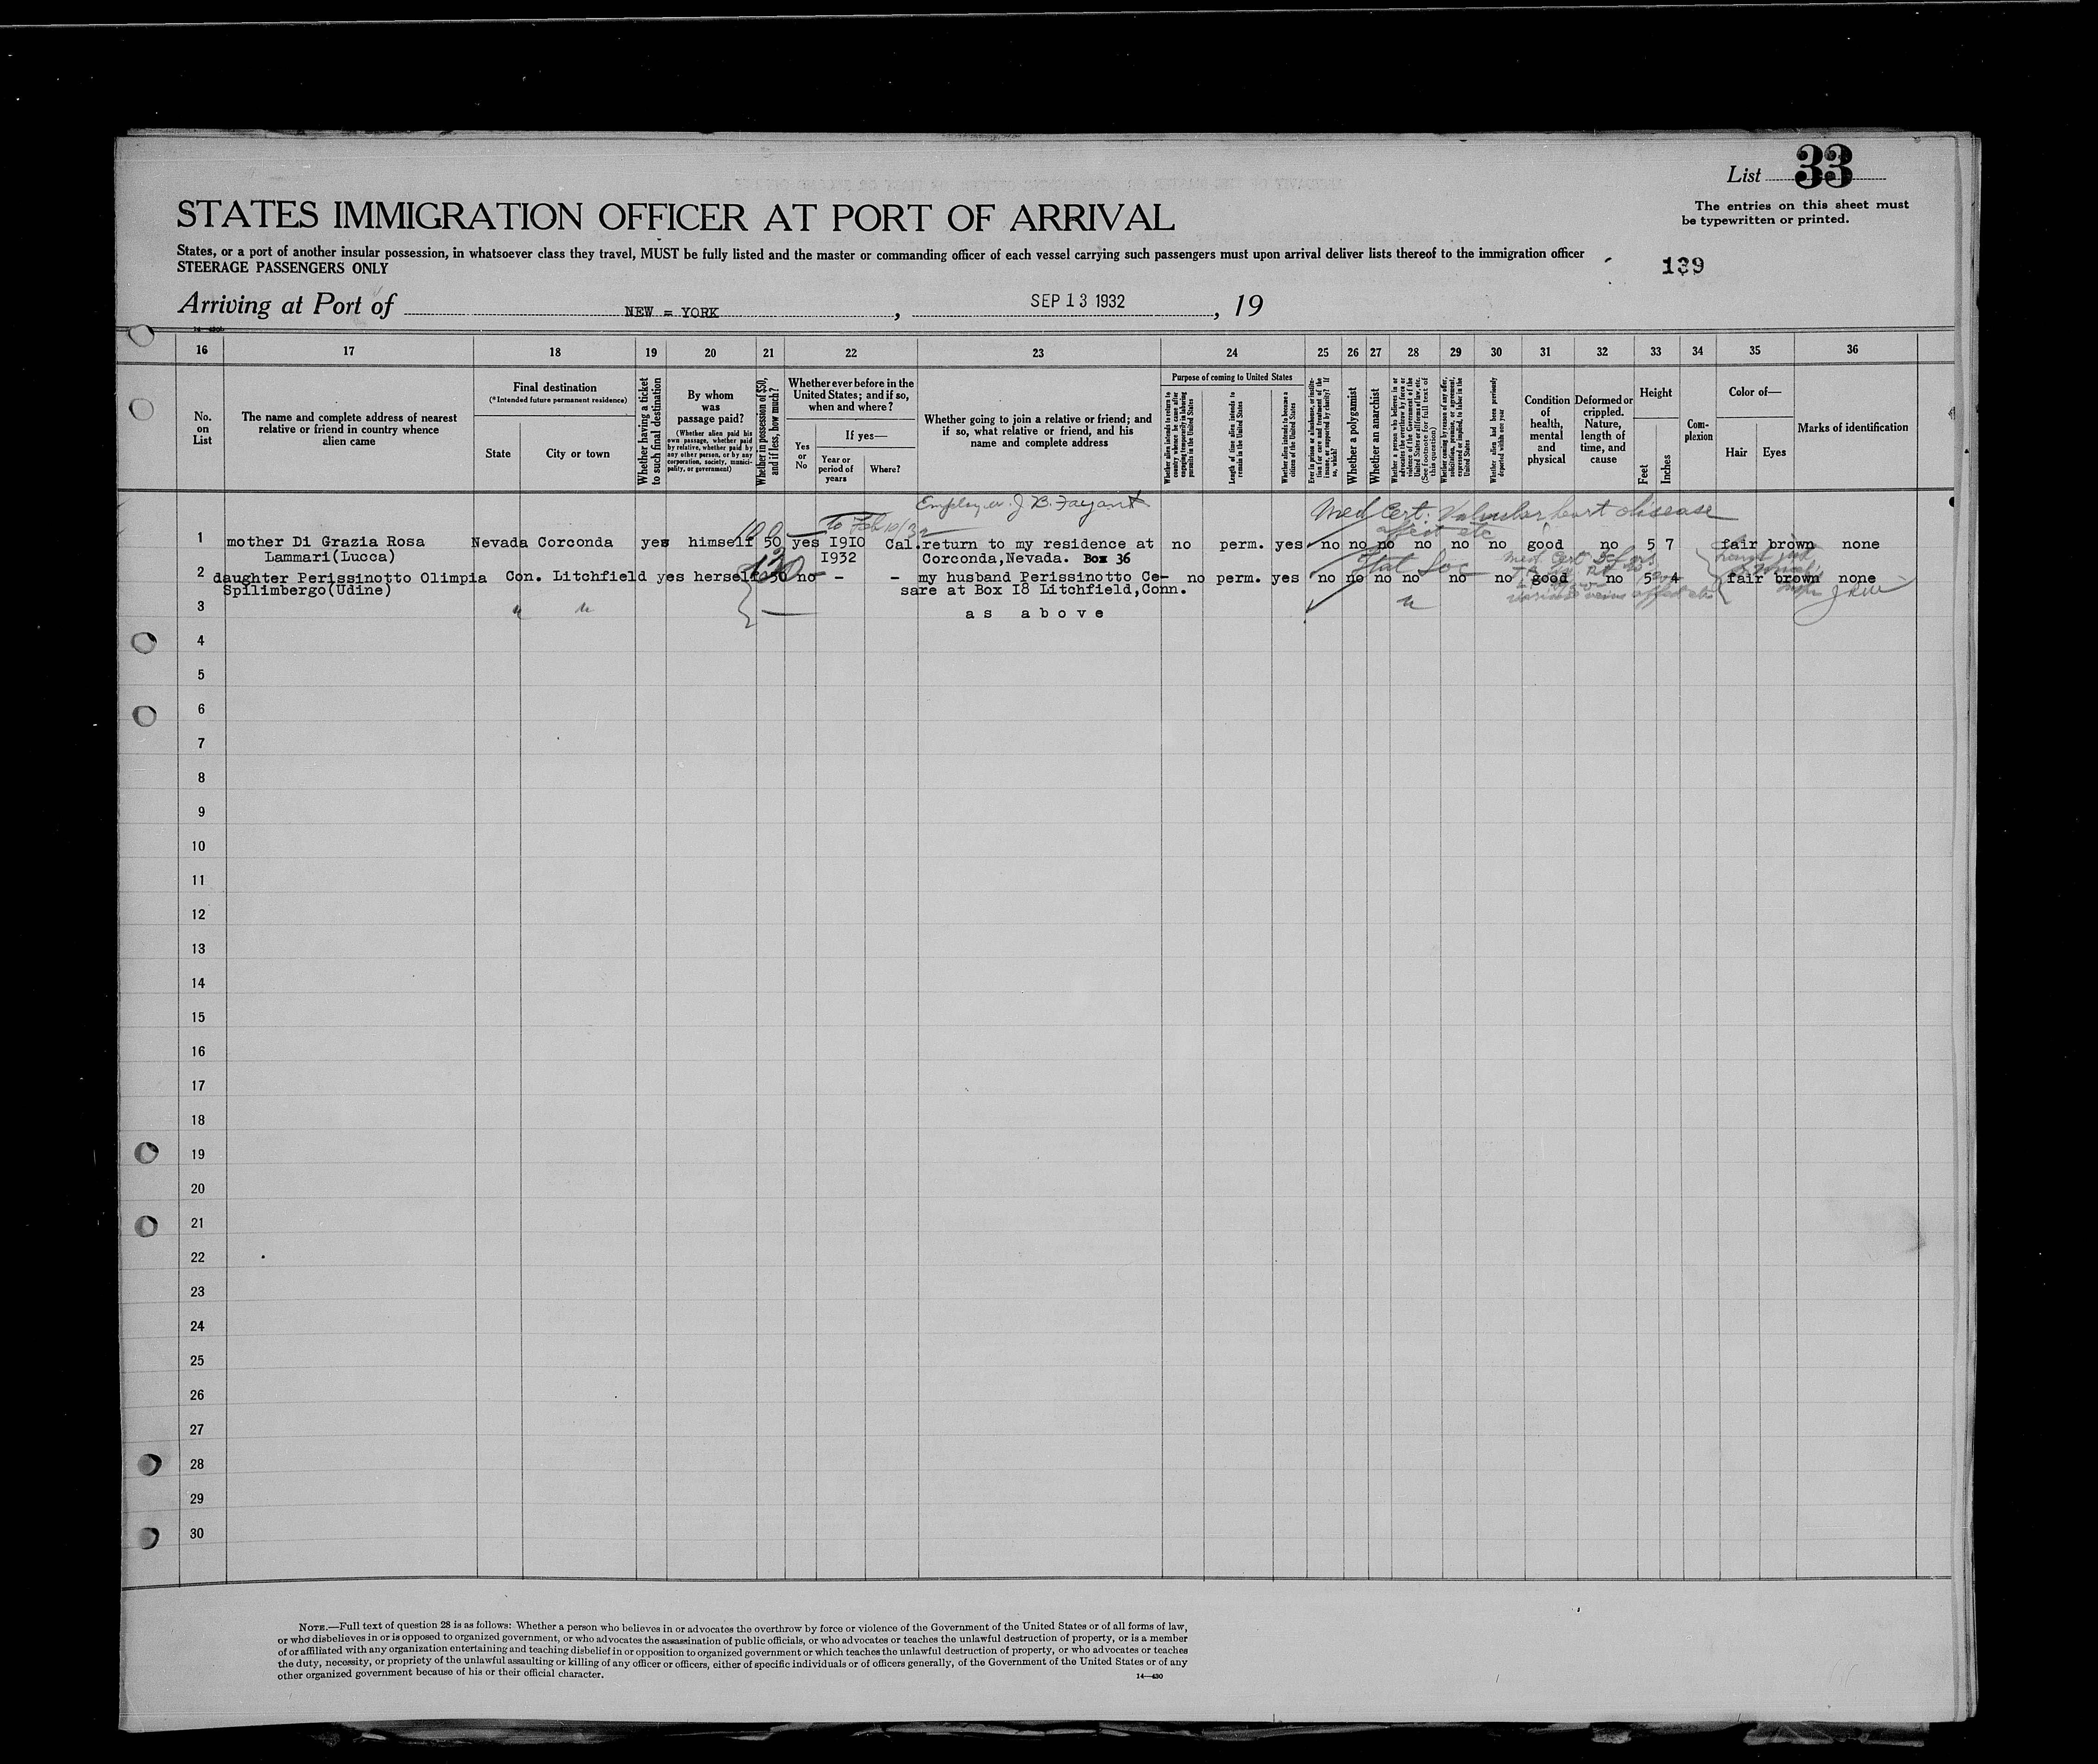 List 33
The entries on this sheet must
be typewritten or printed.
STATES IMMIGRATION OFFICER AT PORT OF ARRIVAL
States, or a port of another insular possession, in whatsoever class they travel, MUST be fully listed and the master or commanding officer of each vessel carrying such passengers must upon arrival deliver lists thereof to the immigration officer
STEERAGE PASSENGERS ONLY
139
Arriving at Port of NEW = YORK, SEP 13 1932, 19
16 17 18 19 20 21 22 23 24 25 26 27 28 29 30 31 32 33 34 35 36
No.
on
List
The name and complete address of nearest
relative or friend in country whence
alien came
Final destination
(*Intended future permanent residence)
State
City or town
Whether having a ticket
to such final destination
By whom
was
passage paid?
(Whether alien paid his
own passage, whether paid
by relative, whether paid by
any other person, or by any
corporation, society, munici-
pality, or government)
Whether in possession of $50,
and if less, how much?
Whether ever before in the
United States; and if so,
when and where?
Yes
or
No
If yes—
Year or
period of
years
Where?
Whether going to join a relative or friend; and
if so, what relative or friend, and his
name and complete address
Purpose of coming to United States
Whether alien intends to return to
country whence he came after
engaging temporarily in laboring
pursuits in the United States
Length of time alien intends to
remain in the United States
Whether alien intends to become a
citizen of the United States
Ever in prison or almshouse, or institu-
tion for care and treatment of the
insane, or supported by charity? If
so, which?
Whether a polygamist
Whether an anarchist
Whether a person who believes in or
advocates the overthrow by force or
violence of the Government of the
United States or all forms of law, etc.
(See footnote for full text of
this question)
Whether coming by reason of any offer,
solicitation, promise, or agreement,
expressed or implied, to labor in the
United States
Whether alien had been previously
deported within one year
Condition
of
health,
mental
and
physical
Deformed or
crippled.
Nature,
length of
time, and
cause
Height
Feet
Inches
Com-
plexion
Color of—
Hair
Eyes
Marks of identification
Employer J B. Fayant
Med Cert: Valvular heart disease
affect etc
100
To Feb 10/32
1 mother Di Grazia Rosa Nevada Corconda yes himself 50 yes 1910 Cal. return to my residence at no perm. yes no no no no no no good no 5 7 fair brown none
Lammari(Lucca) 1932 Corconda,Nevada. Box 36
Stat Soc
2 daughter Perissinotto Olimpia Con. Litchfield yes herself 50 no - - my husband Perissinotto Ce- no perm. yes no no no no no no good no 5 4 fair brown none
Spilimbergo(Udine) sare at Box 18 Litchfield,Conn.
varicose veins affect etc
3 " " as above "
4
5
6
7
8
9
10
11
12
13
14
15
16
17
18
19
20
21
22
23
24
25
26
27
28
29
30
NOTE.—Full text of question 28 is as follows: Whether a person who believes in or advocates the overthrow by force or violence of the Government of the United States or of all forms of law,
or who disbelieves in or is opposed to organized government, or who advocates the assassination of public officials, or who advocates or teaches the unlawful destruction of property, or is a member
of or affiliated with any organization entertaining and teaching disbelief in or opposition to organized government or which teaches the unlawful destruction of property, or who advocates or teaches
the duty, necessity, or propriety of the unlawful assaulting or killing of any officer or officers, either of specific individuals or of officers generally, of the Government of the United States or of any
other organized government because of his or their official character.
14—430